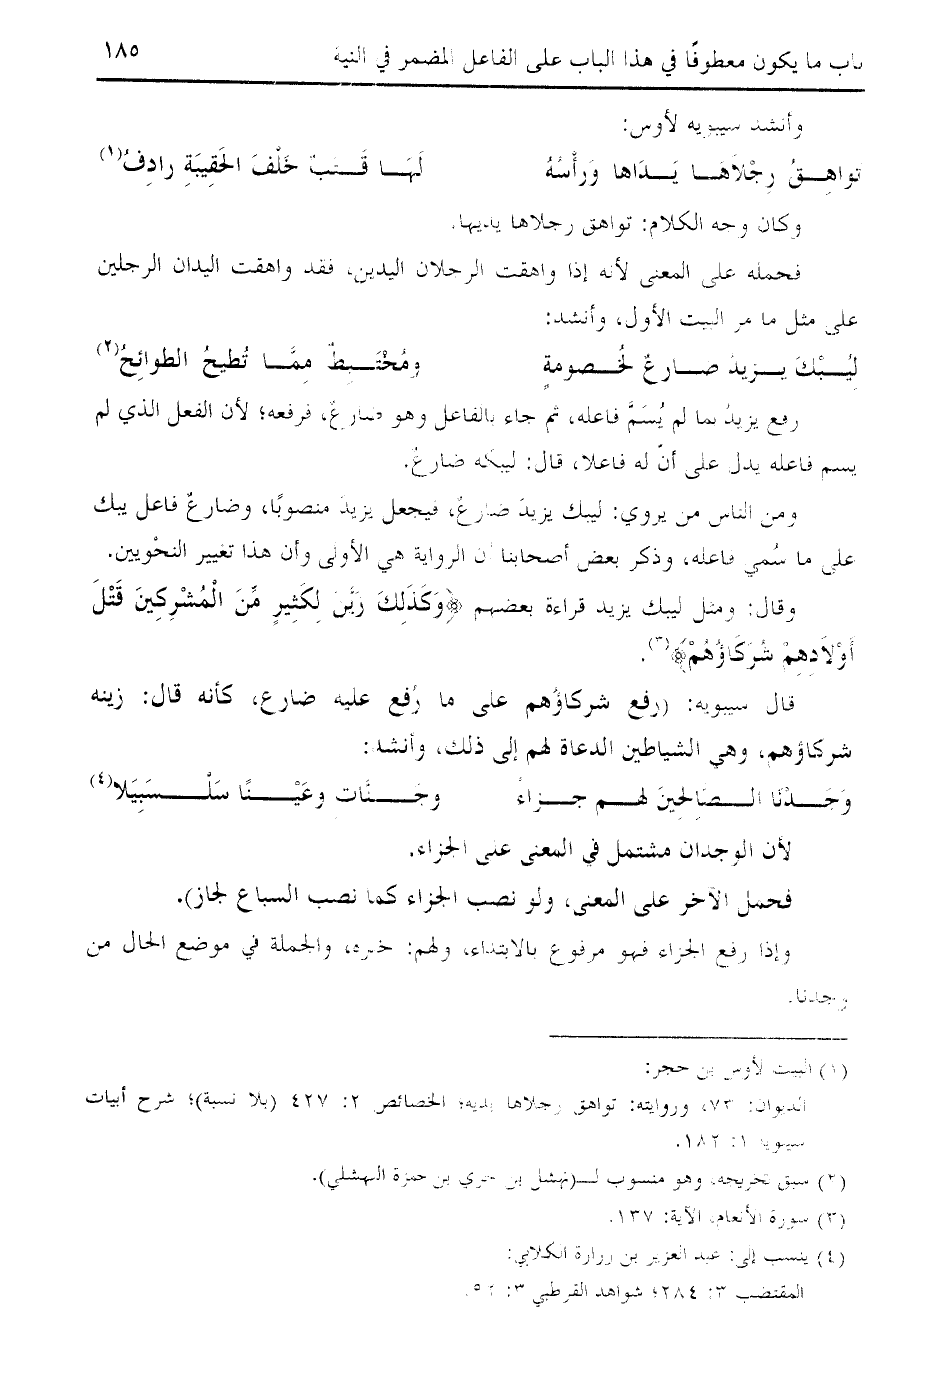 باب ما يكون معطوفًا في هذا الباب على الفاعل المضمر في النية ١٨٥
وأنشد سيبويه لأوس:
تواهــقُ رِجْلاهَــا يَــدَاها وَرَأْسُهُ لَهَــا قَتَــبٌ خَلْفَ الحَقِيبَةِ رادِفُ(١)
وكان وجه الكلام: تواهق رجلاها يديها.
فحمله على المعنى لأنه إذا واهقت الرجلان اليدين، فقد واهقت اليدان الرجلين
على مثل ما مر البيت الأول، وأنشد:
لِيُبْكَ يــزيدُ ضــارعٌ لخُــصومةٍ ومُخْتَــبِطٌ ممَّــا تُطيحُ الطوائحُ(٢)
رفع يزيدُ بما لم يُسَمَّ فاعله، ثم جاء بالفاعل وهو ضارعٌ، فرفعه؛ لأن الفعل الذي لم
يسم فاعله يدل على أنّ له فاعلا، قال: ليبكه ضارعٌ.
ومن الناس من يروي: ليبك يزيدَ ضارعٌ، فيجعل يزيدَ منصوبًا، وضارعٌ فاعل يبك
على ما سُمي فاعله، وذكر بعض أصحابنا أن الرواية هي الأولى وأن هذا تغيير النحْويين.
وقال: ومثل ليبك يزيد قراءة بعضهم ﴿وَكَذَلِكَ زَيَّنَ لِكَثِيرٍ مِّنَ الْمُشْرِكِينَ قَتْلَ
أَوْلَادِهِمْ شُرَكَاؤُهُمْ﴾(٣).
قال سيبويه: (رفع شركاؤهم على ما رُفع عليه ضارع، كأنه قال: زينه
شركاؤهم، وهي الشياطين الدعاة لهم إلى ذلك، وأنشد:
وَجَــدْنَا الــصَالحِينَ لهــم جــزاء وجــنَّات وعَيْــنًا سَلْــسَبِيَلا(٤)
لأن الوجدان مشتمل في المعنى على الجزاء.
فحمل الآخر على المعنى، ولو نصب الجزاء كما نصب السباع لجاز).
وإذا رفع الجزاء فهو مرفوع بالابتداء، ولهم: خبره، والجملة في موضع الحال من
وجدنا.
(١) البيت لأوس بن حجر:
الديوان: ٧٣، وروايته: تواهق رجلاها يديه؛ الخصائص ٢: ٤٢٧ (بلا نسبة)؛ شرح أبيات
سيبويه ١: ١٨٢.
(٢) سبق تخريجه، وهو منسوب لــ(نهشل بن حري بن حمزة النهشلي).
(٣) سورة الأنعام، الآية: ١٣٧.
(٤) ينسب إلى: عبد العزيز بن زرارة الكلابي:
المقتضب ٣: ٢٨٤؛ شواهد القرطبي ٣: